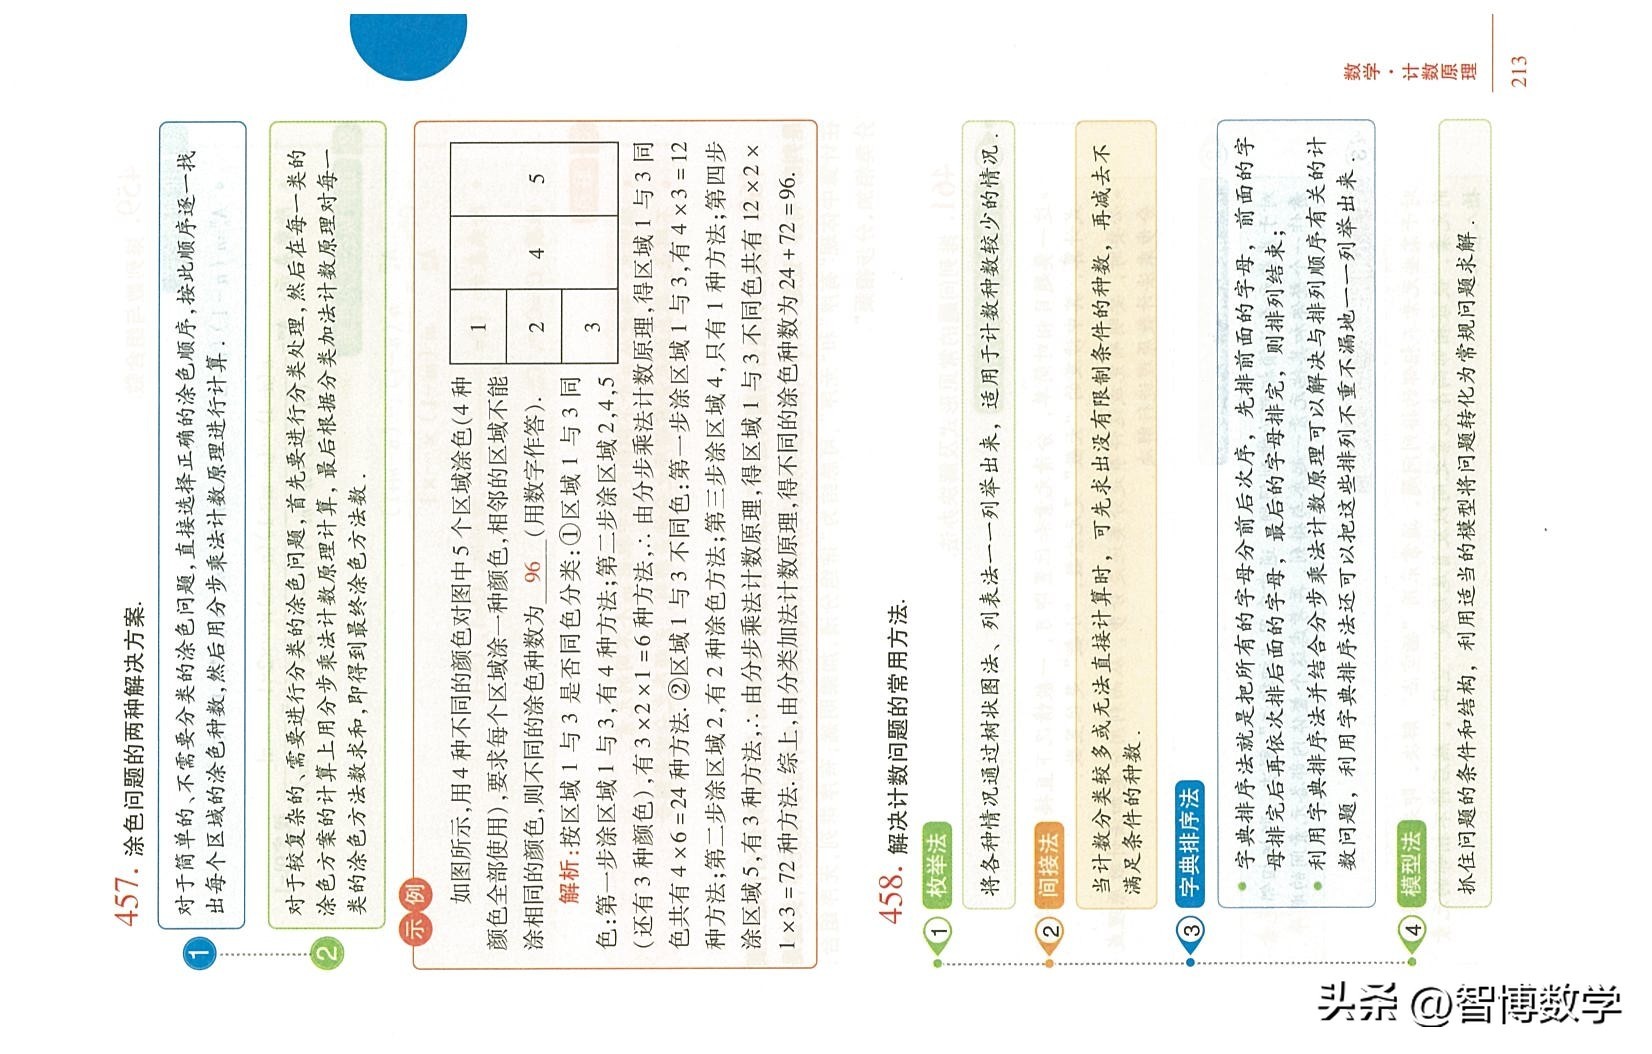 457. 涂色问题的两种解决方案.
1
对于简单的、不需要分类的涂色问题,直接选择正确的涂色顺序,按此顺序逐一找
出每个区域的涂色种数,然后用分步乘法计数原理进行计算.
2
对于较复杂的、需要进行分类的涂色问题,首先要进行分类处理,然后在每一类的
涂色方案的计算上用分步乘法计数原理计算,最后根据分类加法计数原理对每一
类的涂色方法数求和,即得到最终涂色方法数.
示例
如图所示,用4种不同的颜色对图中5个区域涂色(4种
颜色全部使用),要求每个区域涂一种颜色,相邻的区域不能
涂相同的颜色,则不同的涂色种数为 96 (用数字作答).
1
2
3
4
5
解析:按区域1与3是否同色分类:①区域1与3同
色:第一步涂区域1与3,有4种方法;第二步涂区域2,4,5
(还有3种颜色),有3×2×1=6种方法,∴由分步乘法计数原理,得区域1与3同
色共有4×6=24种方法.②区域1与3不同色:第一步涂区域1与3,有4×3=12
种方法;第二步涂区域2,有2种涂色方法;第三步涂区域4,只有1种方法;第四步
涂区域5,有3种方法,∴由分步乘法计数原理,得区域1与3不同色共有12×2×
1×3=72种方法.综上,由分类加法计数原理,得不同的涂色种数为24+72=96.
458. 解决计数问题的常用方法.
1 枚举法
将各种情况通过树状图法、列表法一一列举出来,适用于计数种数较少的情况.
2 间接法
当计数分类较多或无法直接计算时,可先求出没有限制条件的种数,再减去不
满足条件的种数.
3 字典排序法
• 字典排序法就是把所有的字母分前后次序,先排前面的字母,前面的字
母排完后再依次排后面的字母,最后的字母排完,则排列结束;
• 利用字典排序法并结合分步乘法计数原理可以解决与排列顺序有关的计
数问题,利用字典排序法还可以把这些排列不重不漏地一一列举出来.
4 模型法
抓住问题的条件和结构,利用适当的模型将问题转化为常规问题求解.
数学·计数原理
213
头条 @智博数学